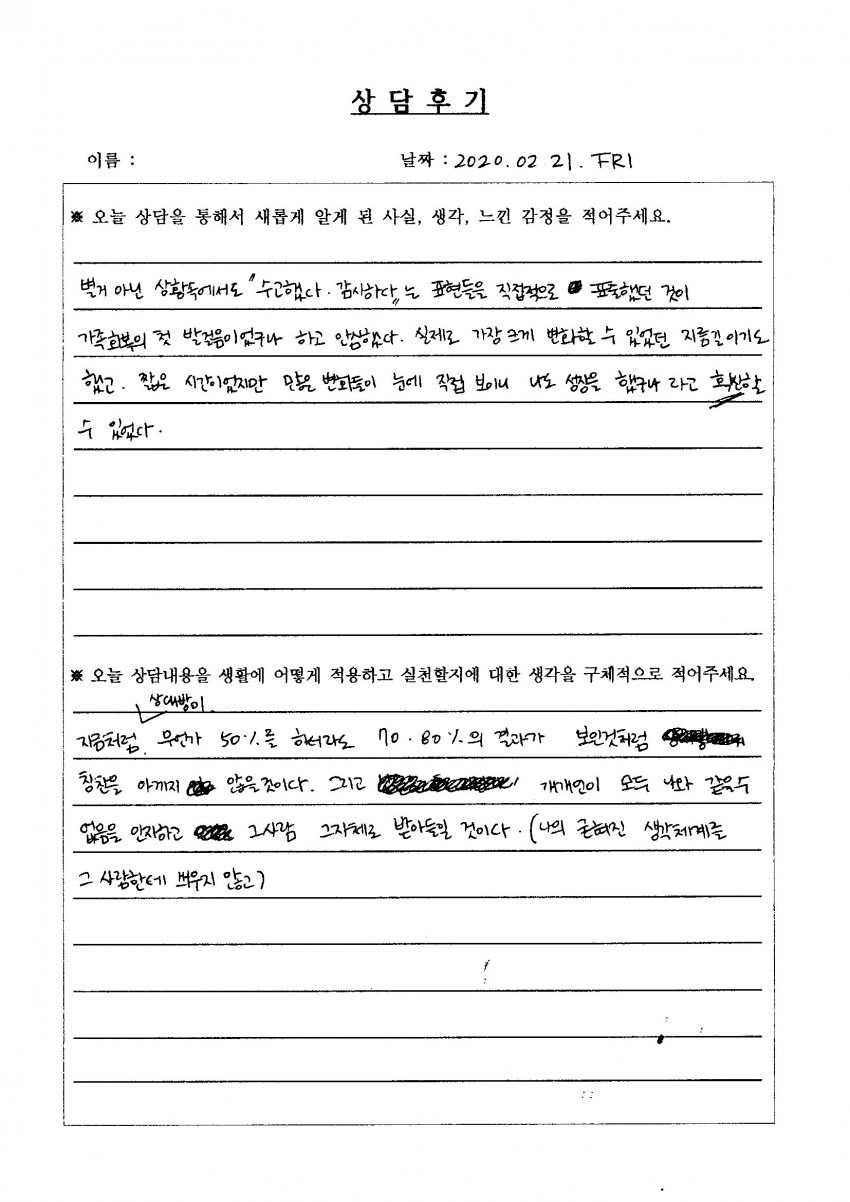 상 담 후 기
이름 :
날짜 : 2020. 02 21. FRI
※ 오늘 상담을 통해서 새롭게 알게 된 사실, 생각, 느낀 감정을 적어주세요.
별거 아닌 상황속에서도 "수고했다. 감사하다"는 표현들을 직접적으로 표출했던 것이
가족회복의 첫 발걸음이었구나 하고 안심했다. 실제로 가장 크게 변화할 수 있었던 지름길이기도
했고. 짧은 시간이었지만 많은 변화들이 눈에 직접 보이니 나도 성장을 했구나 라고 확신할
수 있었다.
※ 오늘 상담내용을 생활에 어떻게 적용하고 실천할지에 대한 생각을 구체적으로 적어주세요.
상대방이
지금처럼 무언가 50%를 하더라도 70. 80%의 결과가 보인것처럼
칭찬을 아끼지 않을것이다. 그리고 개개인이 모두 나와 같을수
없음을 인지하고 그사람 그자체로 받아들일 것이다. (나의 굳혀진 생각체계를
그 사람한테 씌우지 않고)